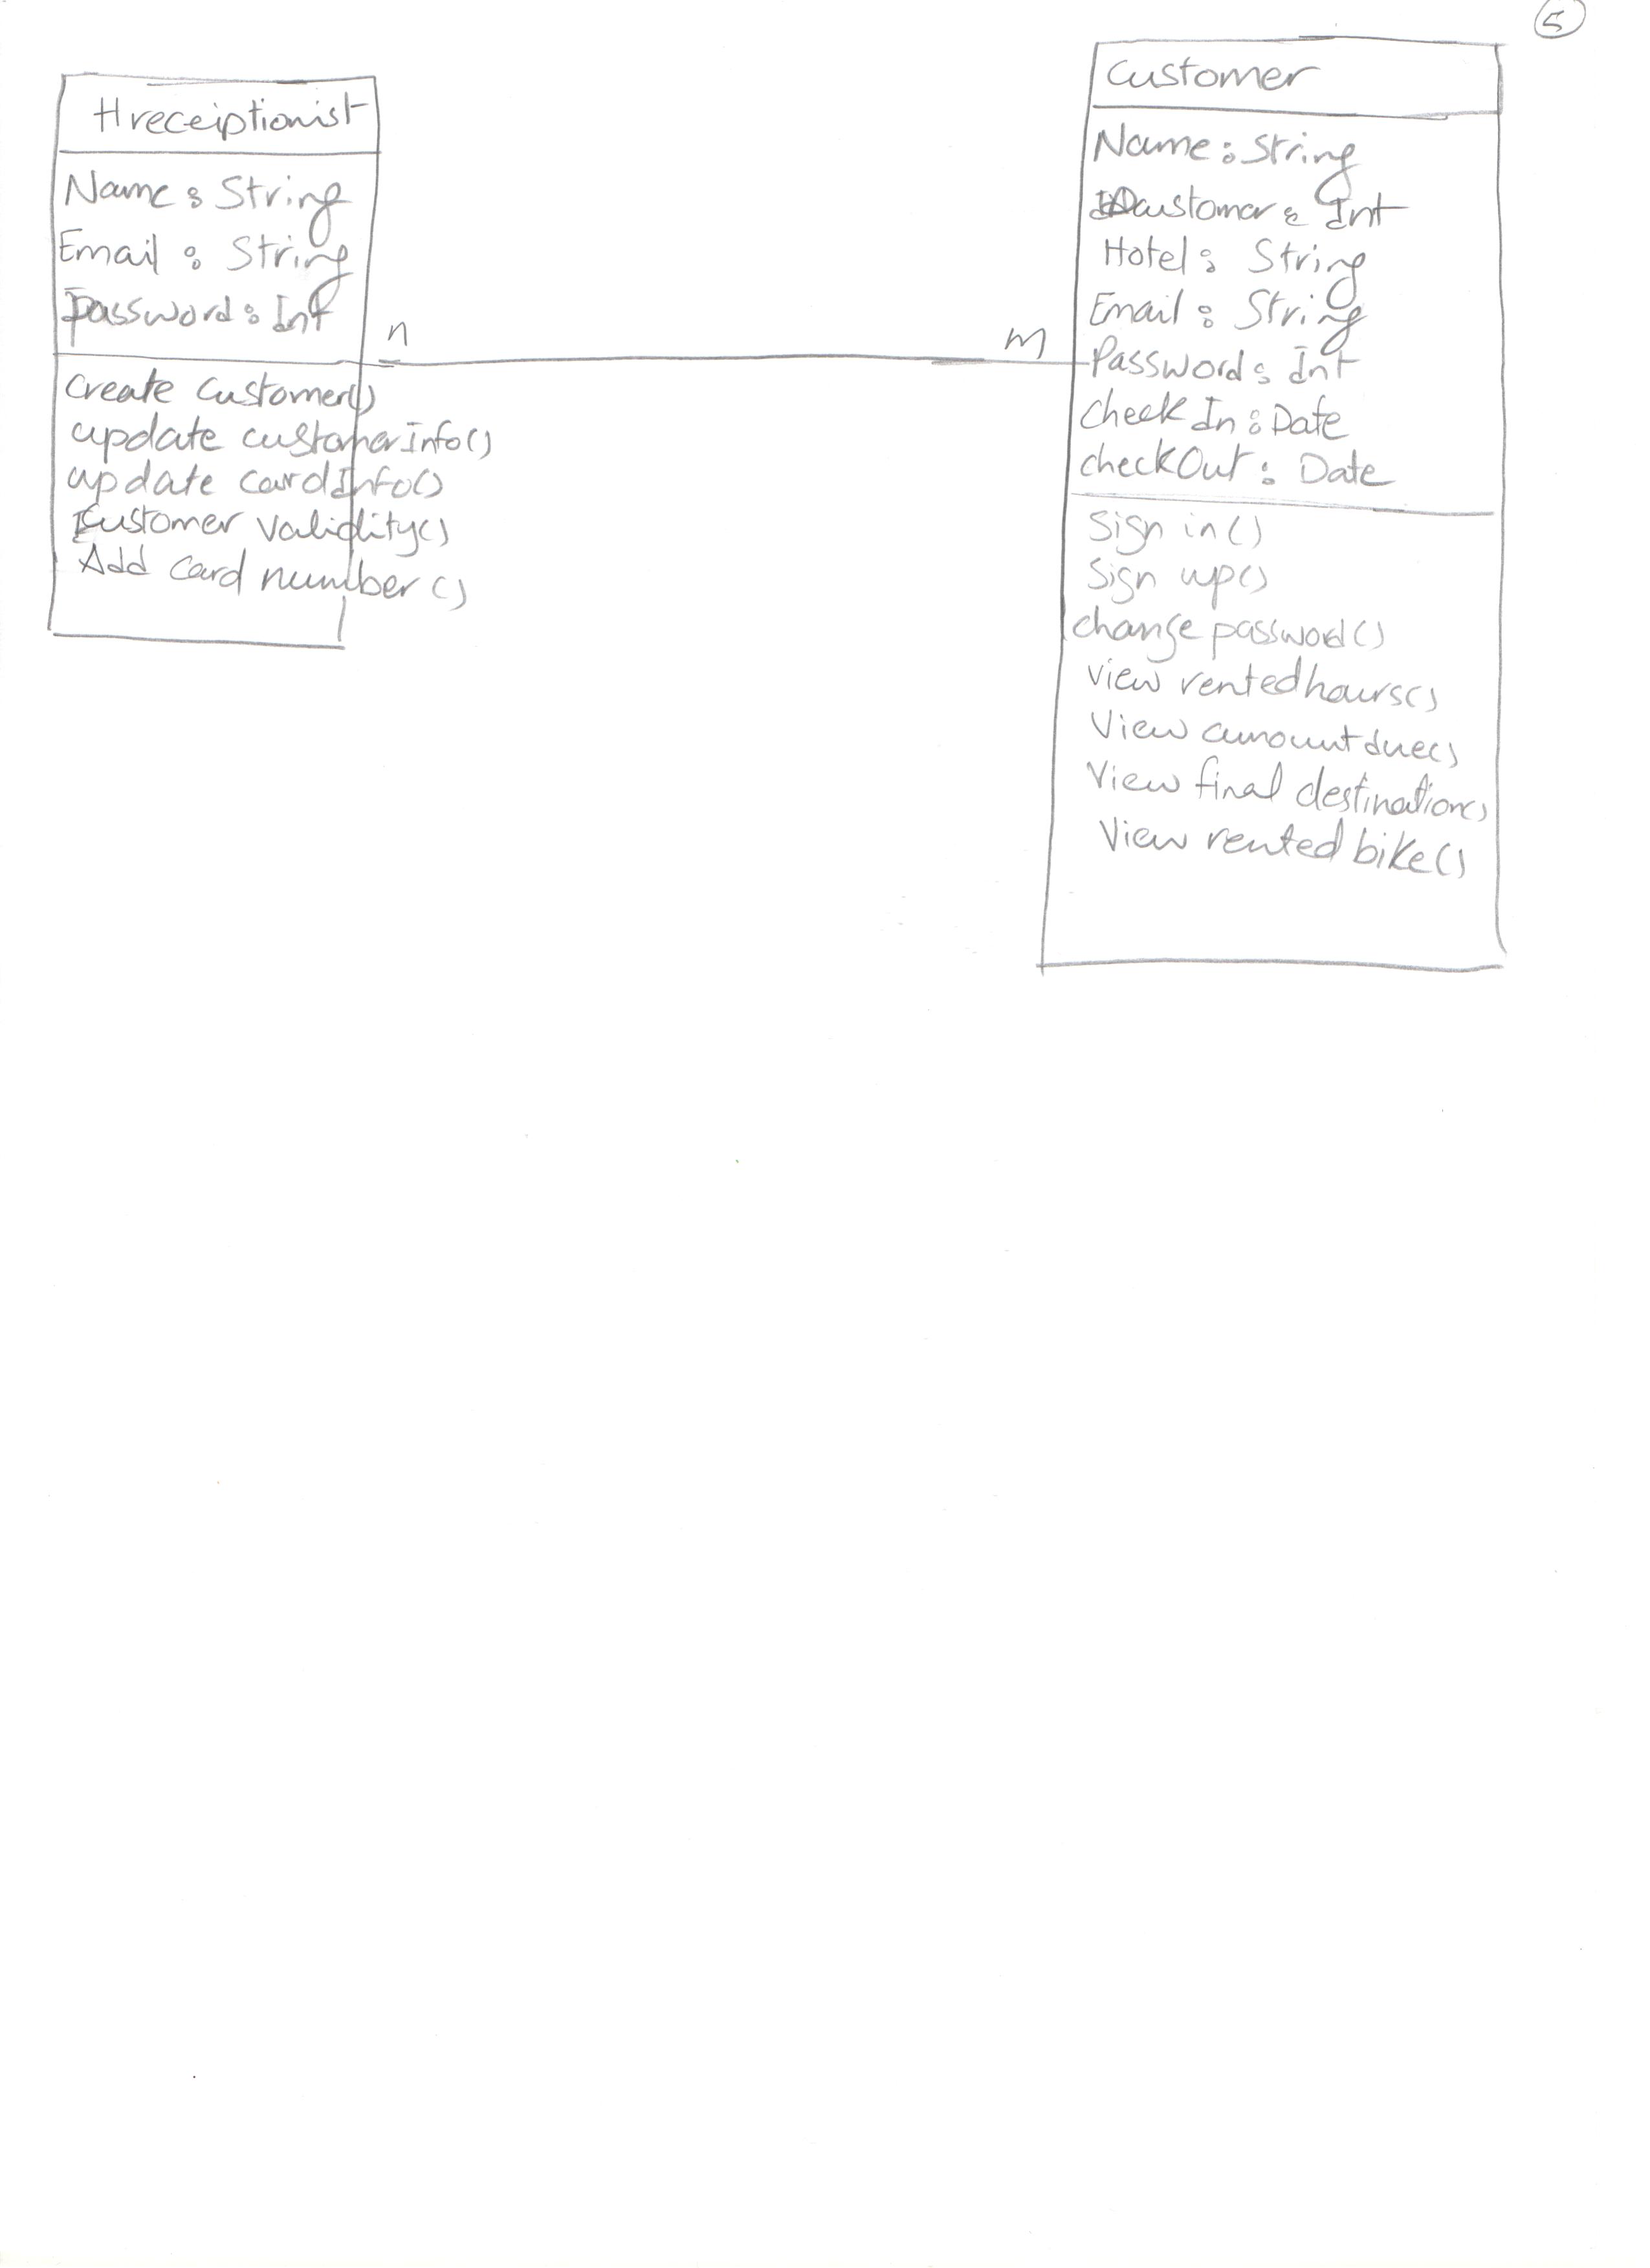 5
Hreceiptionist
Name : String
Email : String
Password : Int
Create Customer()
update customerInfo()
update cardInfo()
Customer validity()
Add Card number ()
n
m
Customer
Name : String
IDcustomer : Int
Hotel : String
Email : String
Password : Int
check In : Date
checkOut : Date
Sign in ()
Sign up()
change password()
View rentedhours()
View amountdue()
View final destination()
View rented bike()